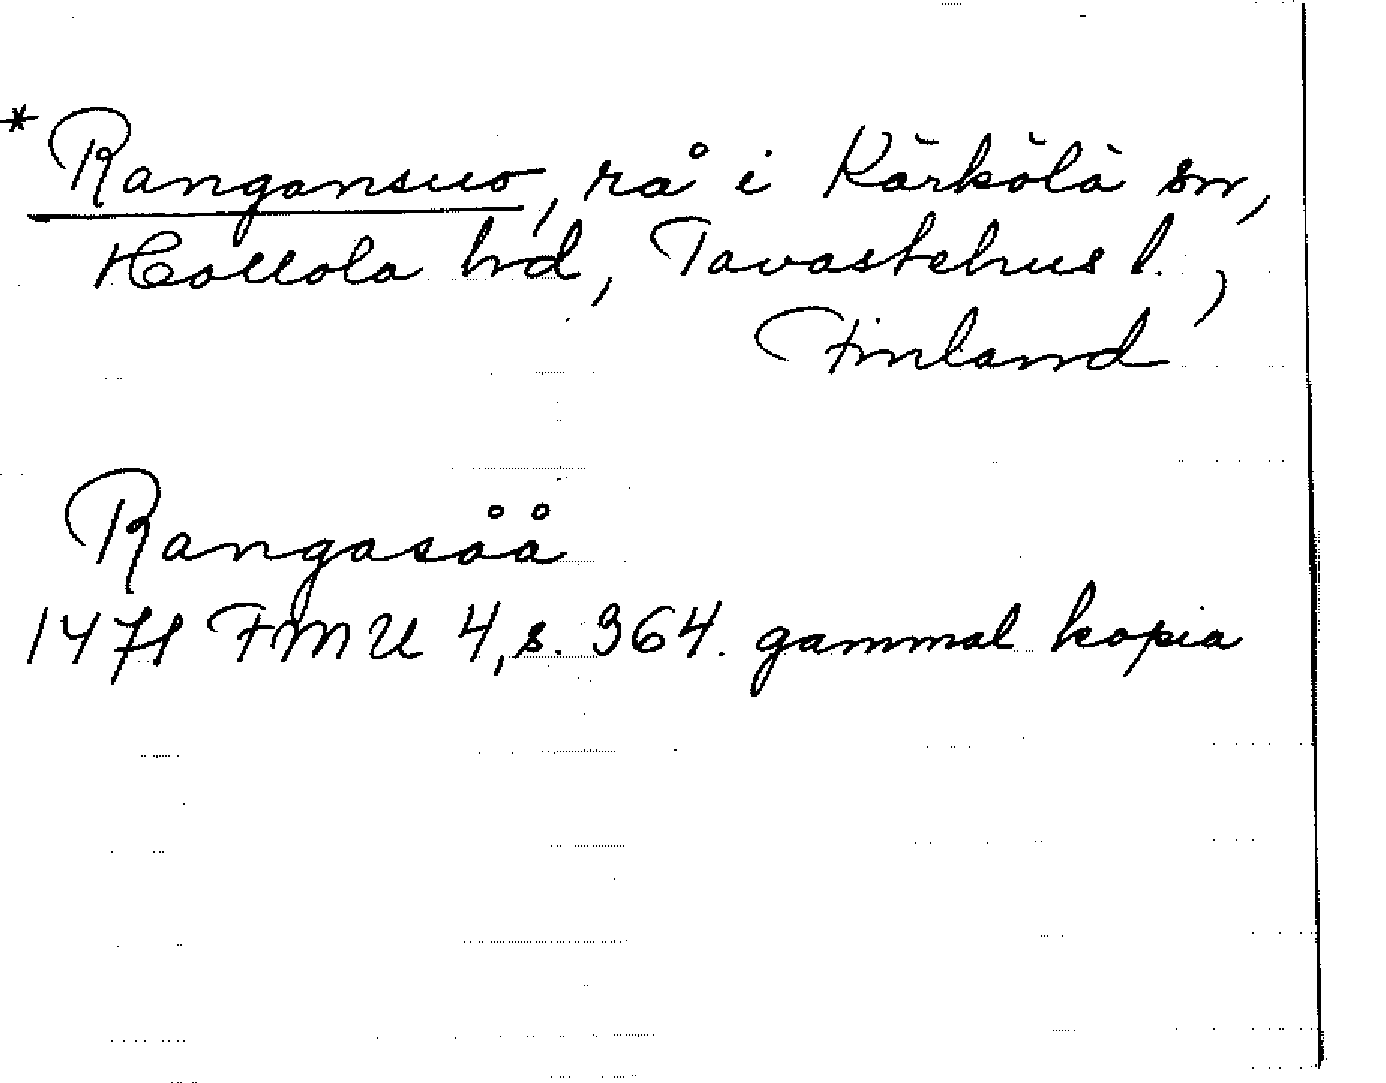 * Rangansuo, rå i Kärkölä sn,
Hollola hd, Tavastehus l.,
Finland
Rangasåå
1471 FMU 4, s. 364. gammal kopia